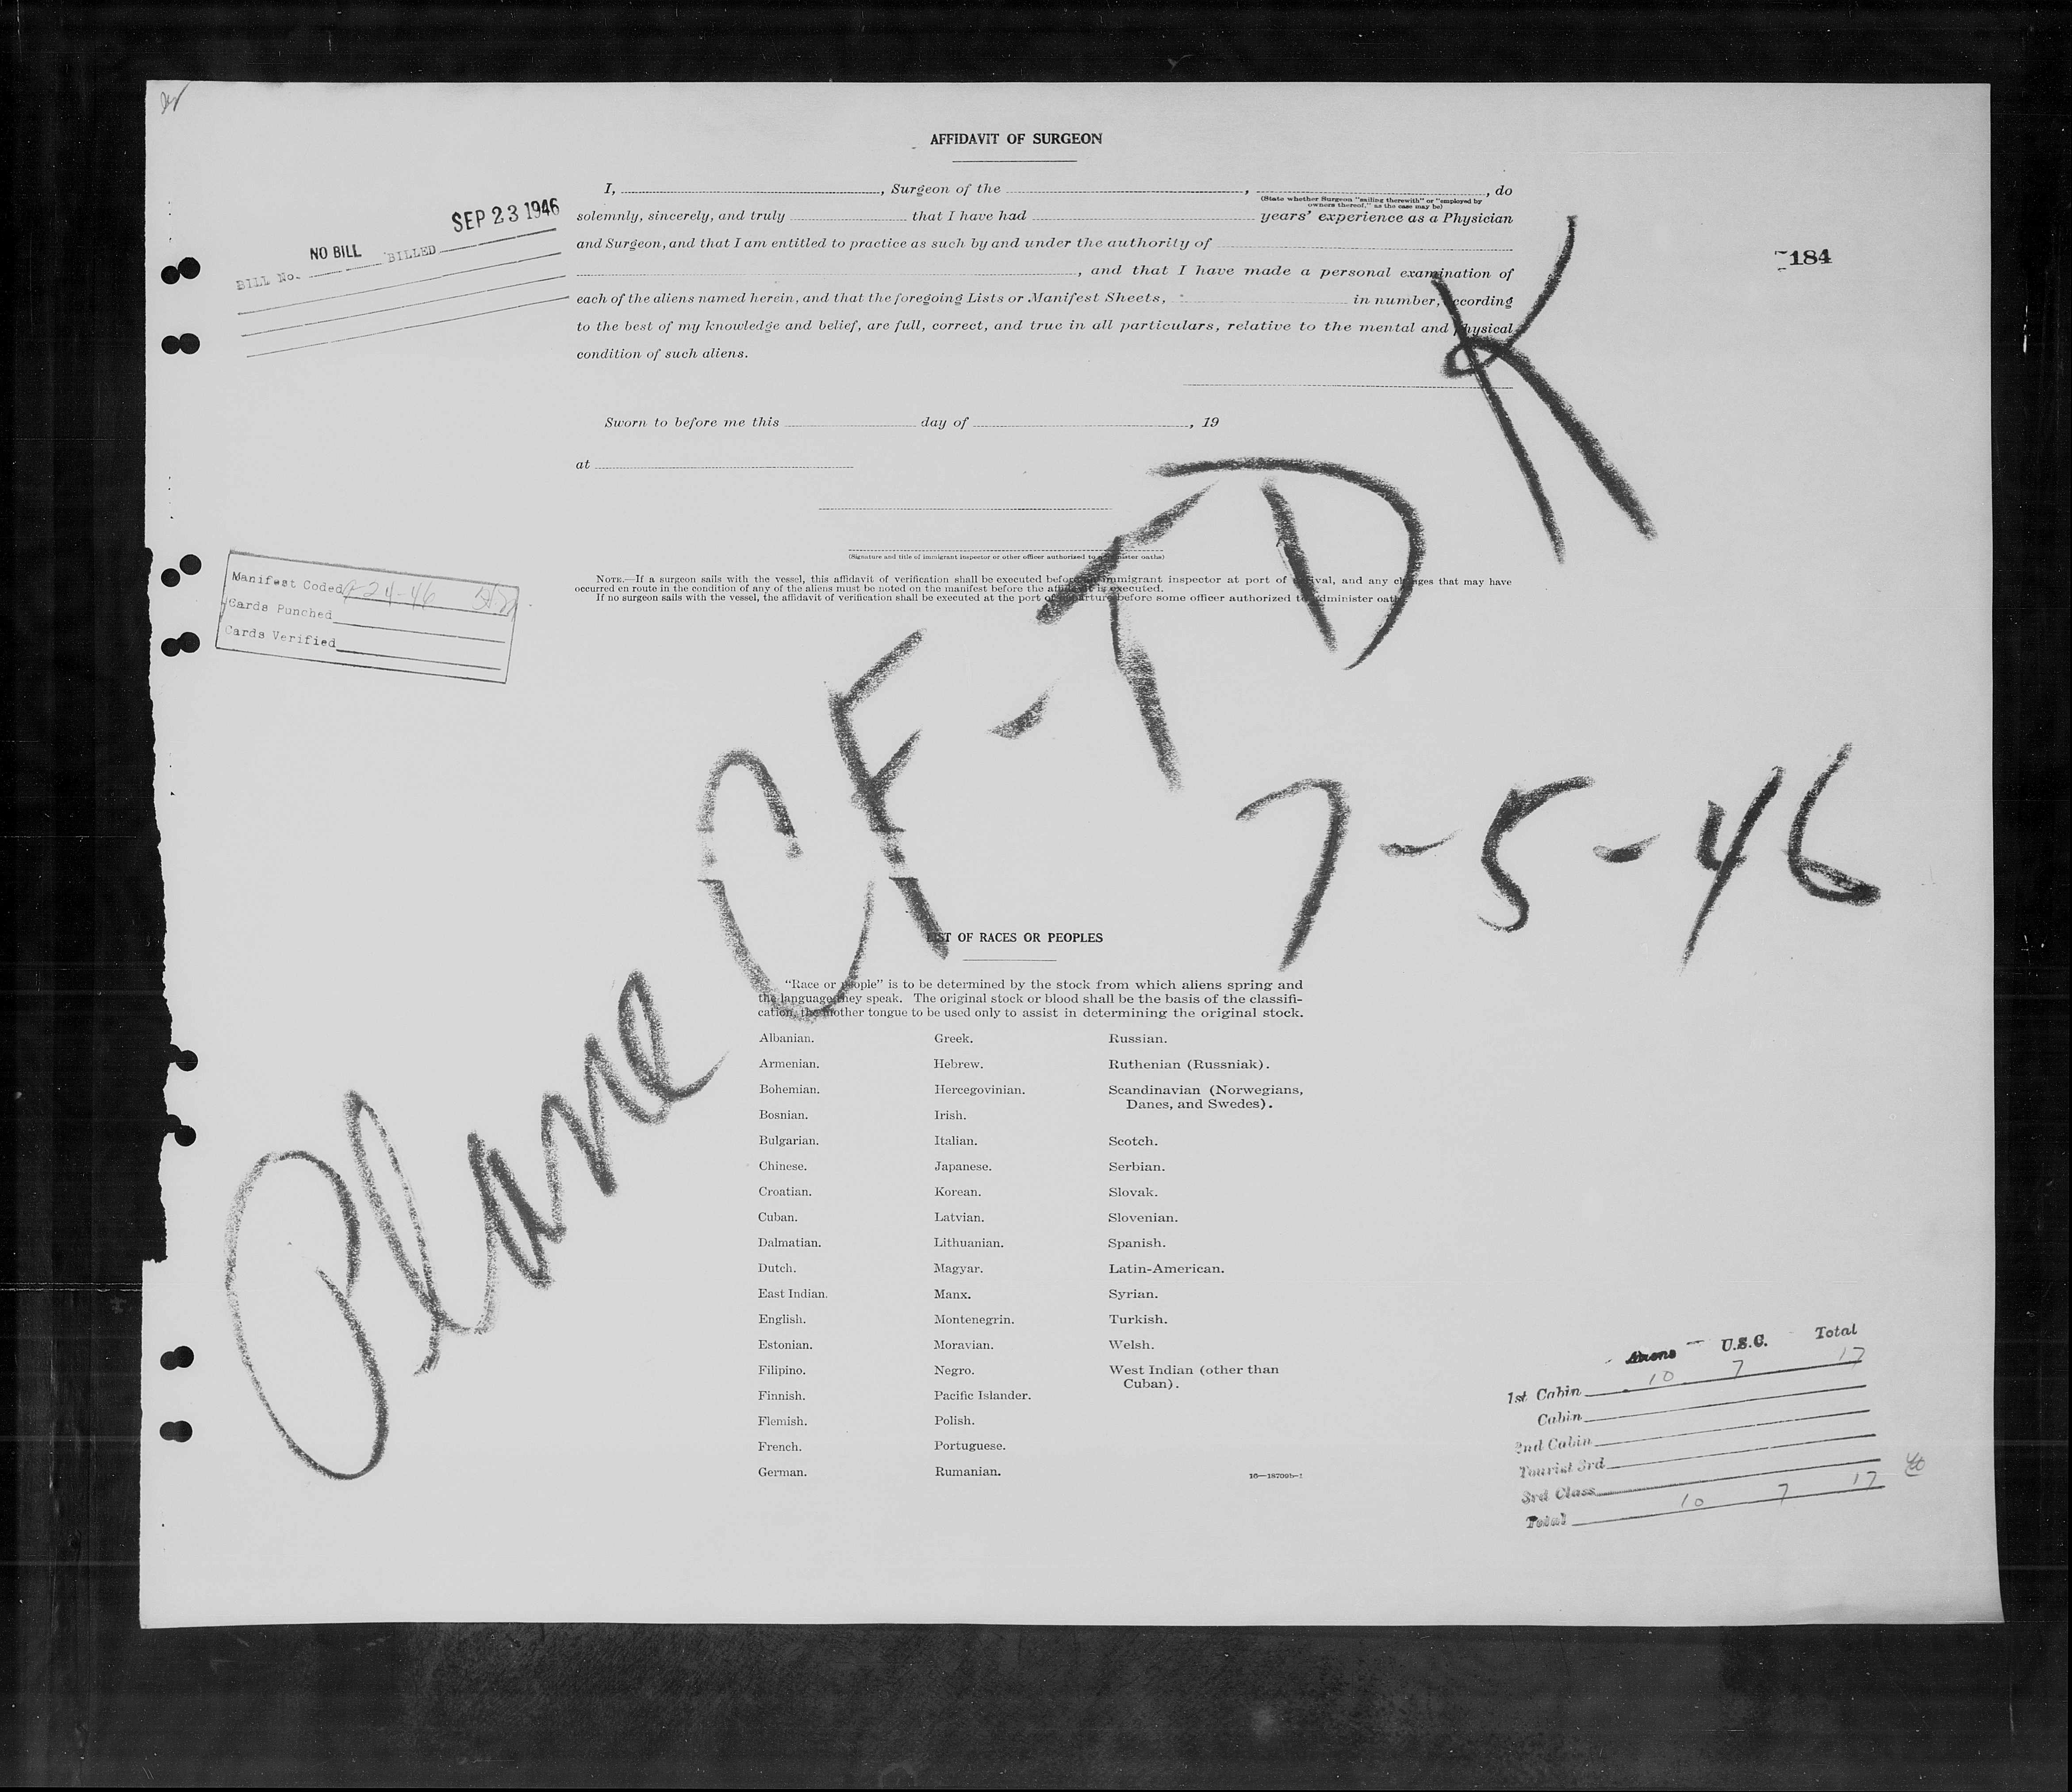 AFFIDAVIT OF SURGEON
I, , Surgeon of the , , do
(State whether Surgeon "sailing therewith" or "employed by
owners thereof," as the case may be)
solemnly, sincerely, and truly that I have had years' experience as a Physician
and Surgeon, and that I am entitled to practice as such by and under the authority of
, and that I have made a personal examination of
each of the aliens named herein, and that the foregoing Lists or Manifest Sheets, in number, according
to the best of my knowledge and belief, are full, correct, and true in all particulars, relative to the mental and physical
condition of such aliens.
Sworn to before me this day of , 19
at
(Signature and title of immigrant inspector or other officer authorized to administer oaths)
NOTE.—If a surgeon sails with the vessel, this affidavit of verification shall be executed before an immigrant inspector at port of arrival, and any changes that may have
occurred en route in the condition of any of the aliens must be noted on the manifest before the affidavit is executed.
If no surgeon sails with the vessel, the affidavit of verification shall be executed at the port of departure before some officer authorized to administer oaths.
SEP 23 1946
NO BILL
BILL No. BILLED
184
Manifest Coded 9-24-46
Cards Punched
Cards Verified
Plane CF-TDK
7-5-46
LIST OF RACES OR PEOPLES
"Race or people" is to be determined by the stock from which aliens spring and
the language they speak. The original stock or blood shall be the basis of the classifi-
cation, the mother tongue to be used only to assist in determining the original stock.
Albanian.
Armenian.
Bohemian.
Bosnian.
Bulgarian.
Chinese.
Croatian.
Cuban.
Dalmatian.
Dutch.
East Indian.
English.
Estonian.
Filipino.
Finnish.
Flemish.
French.
German.
Greek.
Hebrew.
Hercegovinian.
Irish.
Italian.
Japanese.
Korean.
Latvian.
Lithuanian.
Magyar.
Manx.
Montenegrin.
Moravian.
Negro.
Pacific Islander.
Polish.
Portuguese.
Rumanian.
Russian.
Ruthenian (Russniak).
Scandinavian (Norwegians,
Danes, and Swedes).
Scotch.
Serbian.
Slovak.
Slovenian.
Spanish.
Latin-American.
Syrian.
Turkish.
Welsh.
West Indian (other than
Cuban).
16—18709b-1
Aliens U.S.C. Total
1st Cabin 10 7 17
Cabin
2nd Cabin
Tourist 3rd
3rd Class
Total 10 7 17